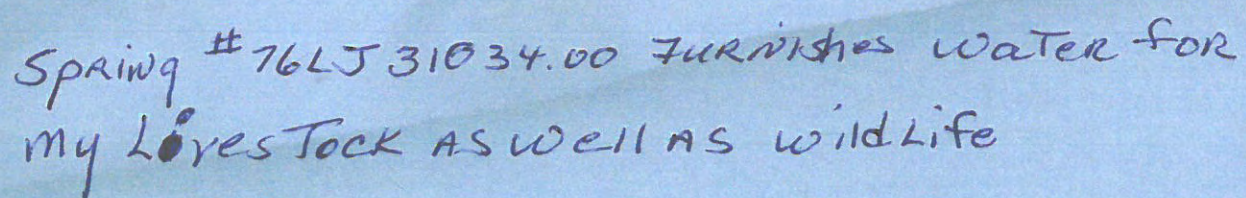 Spring #76LJ31034.00 Furnishes water for
my LivesTock AS well AS wildLife